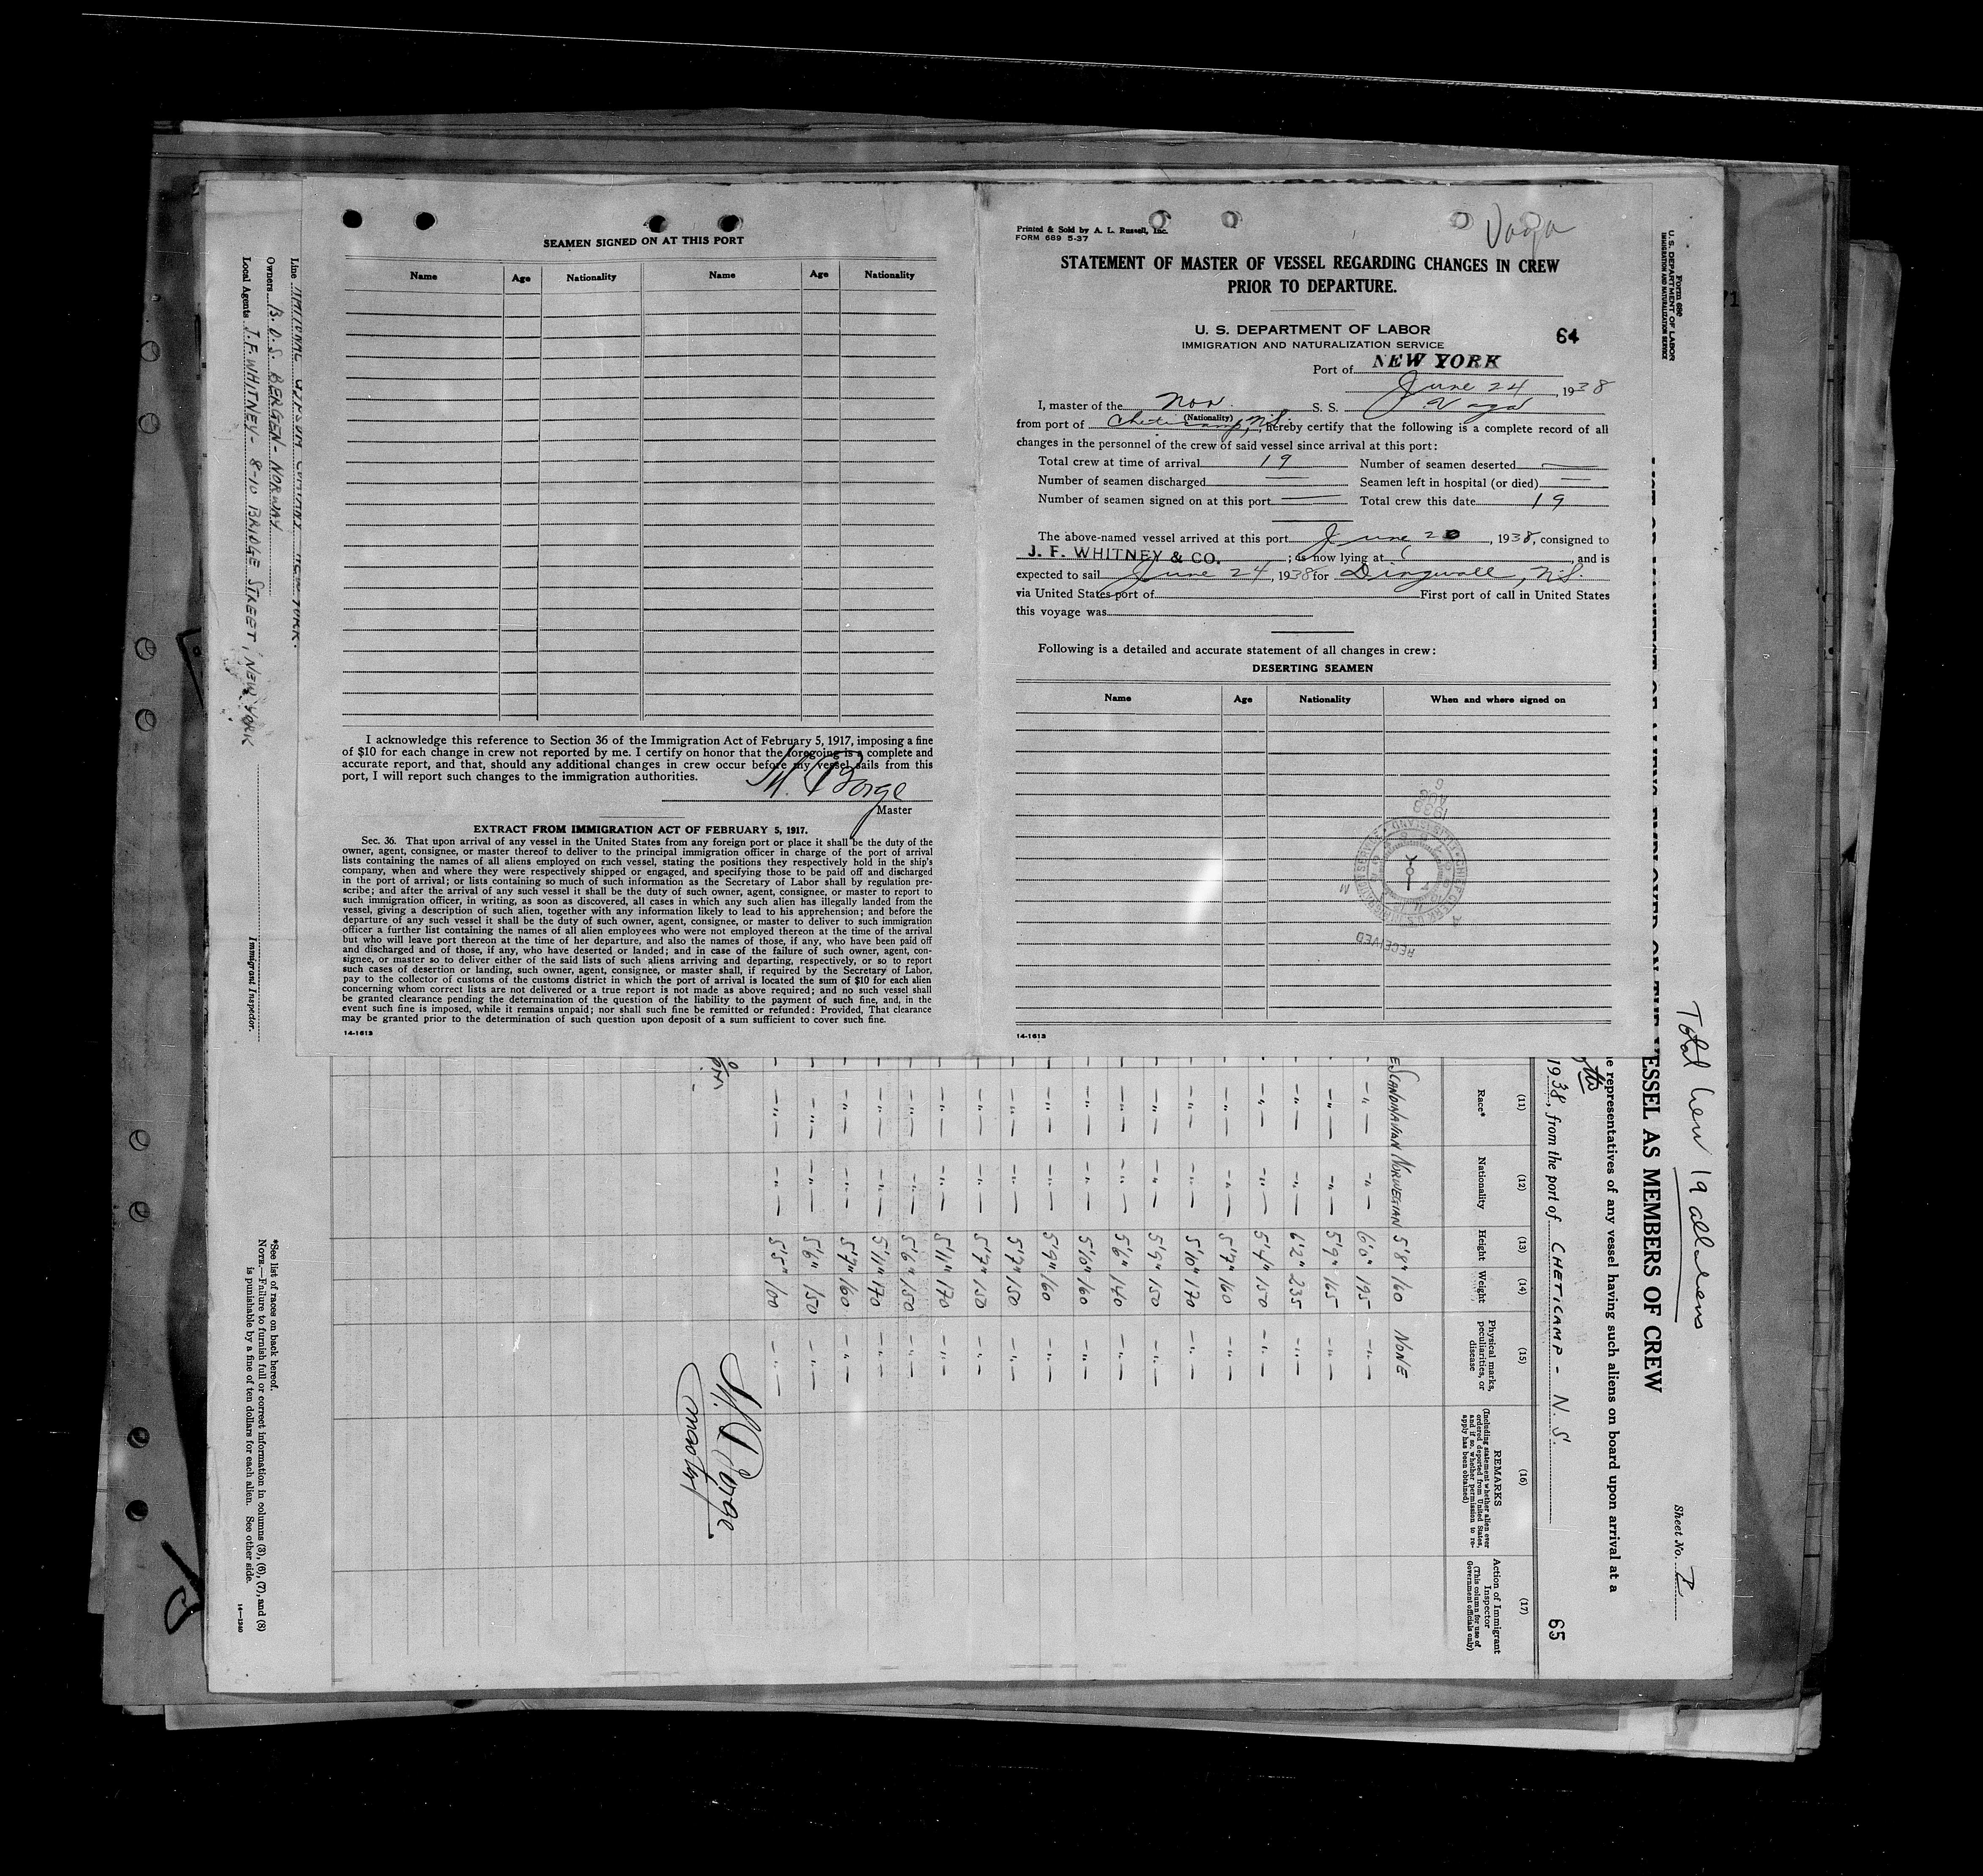 SEAMEN SIGNED ON AT THIS PORT
Name Age Nationality Name Age Nationality
I acknowledge this reference to Section 36 of the Immigration Act of February 5, 1917, imposing a fine
of $10 for each change in crew not reported by me. I certify on honor that the foregoing is a complete and
accurate report, and that, should any additional changes in crew occur before my vessel sails from this
port, I will report such changes to the immigration authorities.
M. Borge
Master
EXTRACT FROM IMMIGRATION ACT OF FEBRUARY 5, 1917.
Sec. 36. That upon arrival of any vessel in the United States from any foreign port or place it shall be the duty of the
owner, agent, consignee, or master thereof to deliver to the principal immigration officer in charge of the port of arrival
lists containing the names of all aliens employed on such vessel, stating the positions they respectively hold in the ship's
company, when and where they were respectively shipped or engaged, and specifying those to be paid off and discharged
in the port of arrival; or lists containing so much of such information as the Secretary of Labor shall by regulation pre-
scribe; and after the arrival of any such vessel it shall be the duty of such owner, agent, consignee, or master to report to
such immigration officer, in writing, as soon as discovered, all cases in which any such alien has illegally landed from the
vessel, giving a description of such alien, together with any information likely to lead to his apprehension; and before the
departure of any such vessel it shall be the duty of such owner, agent, consignee, or master to deliver to such immigration
officer a further list containing the names of all alien employees who were not employed thereon at the time of the arrival
but who will leave port thereon at the time of her departure, and also the names of those, if any, who have been paid off
and discharged and of those, if any, who have deserted or landed; and in case of the failure of such owner, agent, con-
signee, or master so to deliver either of the said lists of such aliens arriving and departing, respectively, or so to report
such cases of desertion or landing, such owner, agent, consignee, or master shall, if required by the Secretary of Labor,
pay to the collector of customs of the customs district in which the port of arrival is located the sum of $10 for each alien
concerning whom correct lists are not delivered or a true report is not made as above required; and no such vessel shall
be granted clearance pending the determination of the question of the liability to the payment of such fine, and, in the
event such fine is imposed, while it remains unpaid; nor shall such fine be remitted or refunded: Provided, That clearance
may be granted prior to the determination of such question upon deposit of a sum sufficient to cover such fine.
14-1613
Vaga
Printed & Sold by A. L. Russell, Inc.
FORM 689 5-37
STATEMENT OF MASTER OF VESSEL REGARDING CHANGES IN CREW
PRIOR TO DEPARTURE.
U. S. DEPARTMENT OF LABOR
IMMIGRATION AND NATURALIZATION SERVICE
64
Port of NEW YORK
June 24, 1938
I, master of the Nor. S. S. Vaga
(Nationality)
from port of Cheticamp, N.S., hereby certify that the following is a complete record of all
changes in the personnel of the crew of said vessel since arrival at this port:
Total crew at time of arrival 19 Number of seamen deserted —
Number of seamen discharged — Seamen left in hospital (or died) —
Number of seamen signed on at this port — Total crew this date 19
The above-named vessel arrived at this port June 20, 1938, consigned to
J. F. WHITNEY & CO. ; is now lying at , and is
expected to sail June 24, 1938 for Dingwall, N.S.
via United States port of First port of call in United States
this voyage was
Following is a detailed and accurate statement of all changes in crew:
DESERTING SEAMEN
Name Age Nationality When and where signed on
RECEIVED
14-1613
Form 680
U. S. DEPARTMENT OF LABOR
IMMIGRATION AND NATURALIZATION SERVICE
Total Crew 19 all aliens
Sheet No. 2
ESSEL AS MEMBERS OF CREW
e representatives of any vessel having such aliens on board upon arrival at a
1938, from the port of CHETICAMP - N.S.
65
(11) (12) (13) (14) (15) (16) (17)
Race* Nationality Height Weight Physical marks, peculiarities, or disease REMARKS (Including statement whether alien ever ordered deported from United States, and if so, whether permission to re-apply has been obtained) Action of Immigrant Inspector (This column for use of Government officials only)
SCANDINAVIAN NORWEGIAN 5'8" 160 NONE
-"- -"- 6'0" 195 -"-
-"- -"- 5'9" 165 -"-
-"- -"- 6'2" 235 -"-
-"- -"- 5'4" 150 -"-
-"- -"- 5'7" 160 -"-
-"- -"- 5'10" 170 -"-
-"- -"- 5'9" 150 -"-
-"- -"- 5'6" 140 -"-
-"- -"- 5'10" 160 -"-
-"- -"- 5'9" 160 -"-
-"- -"- 5'7" 150 -"-
-"- -"- 5'7" 150 -"-
-"- -"- 5'11" 170 -"-
-"- -"- 5'6" 150 -"-
-"- -"- 5'11" 170 -"-
-"- -"- 5'7" 160 -"-
-"- -"- 5'6" 150 -"-
-"- -"- 5'5" 100 -"-
M. Borge
master
Line
Owners B. D. S. BERGEN - NORWAY
Local Agents J. F. WHITNEY - 8-10 BRIDGE STREET, NEW YORK
Immigrant Inspector.
*See list of races on back hereof.
NOTE.—Failure to furnish full or correct information in columns (3), (6), (7), and (8)
is punishable by a fine of ten dollars for each alien. See other side.
14-1240